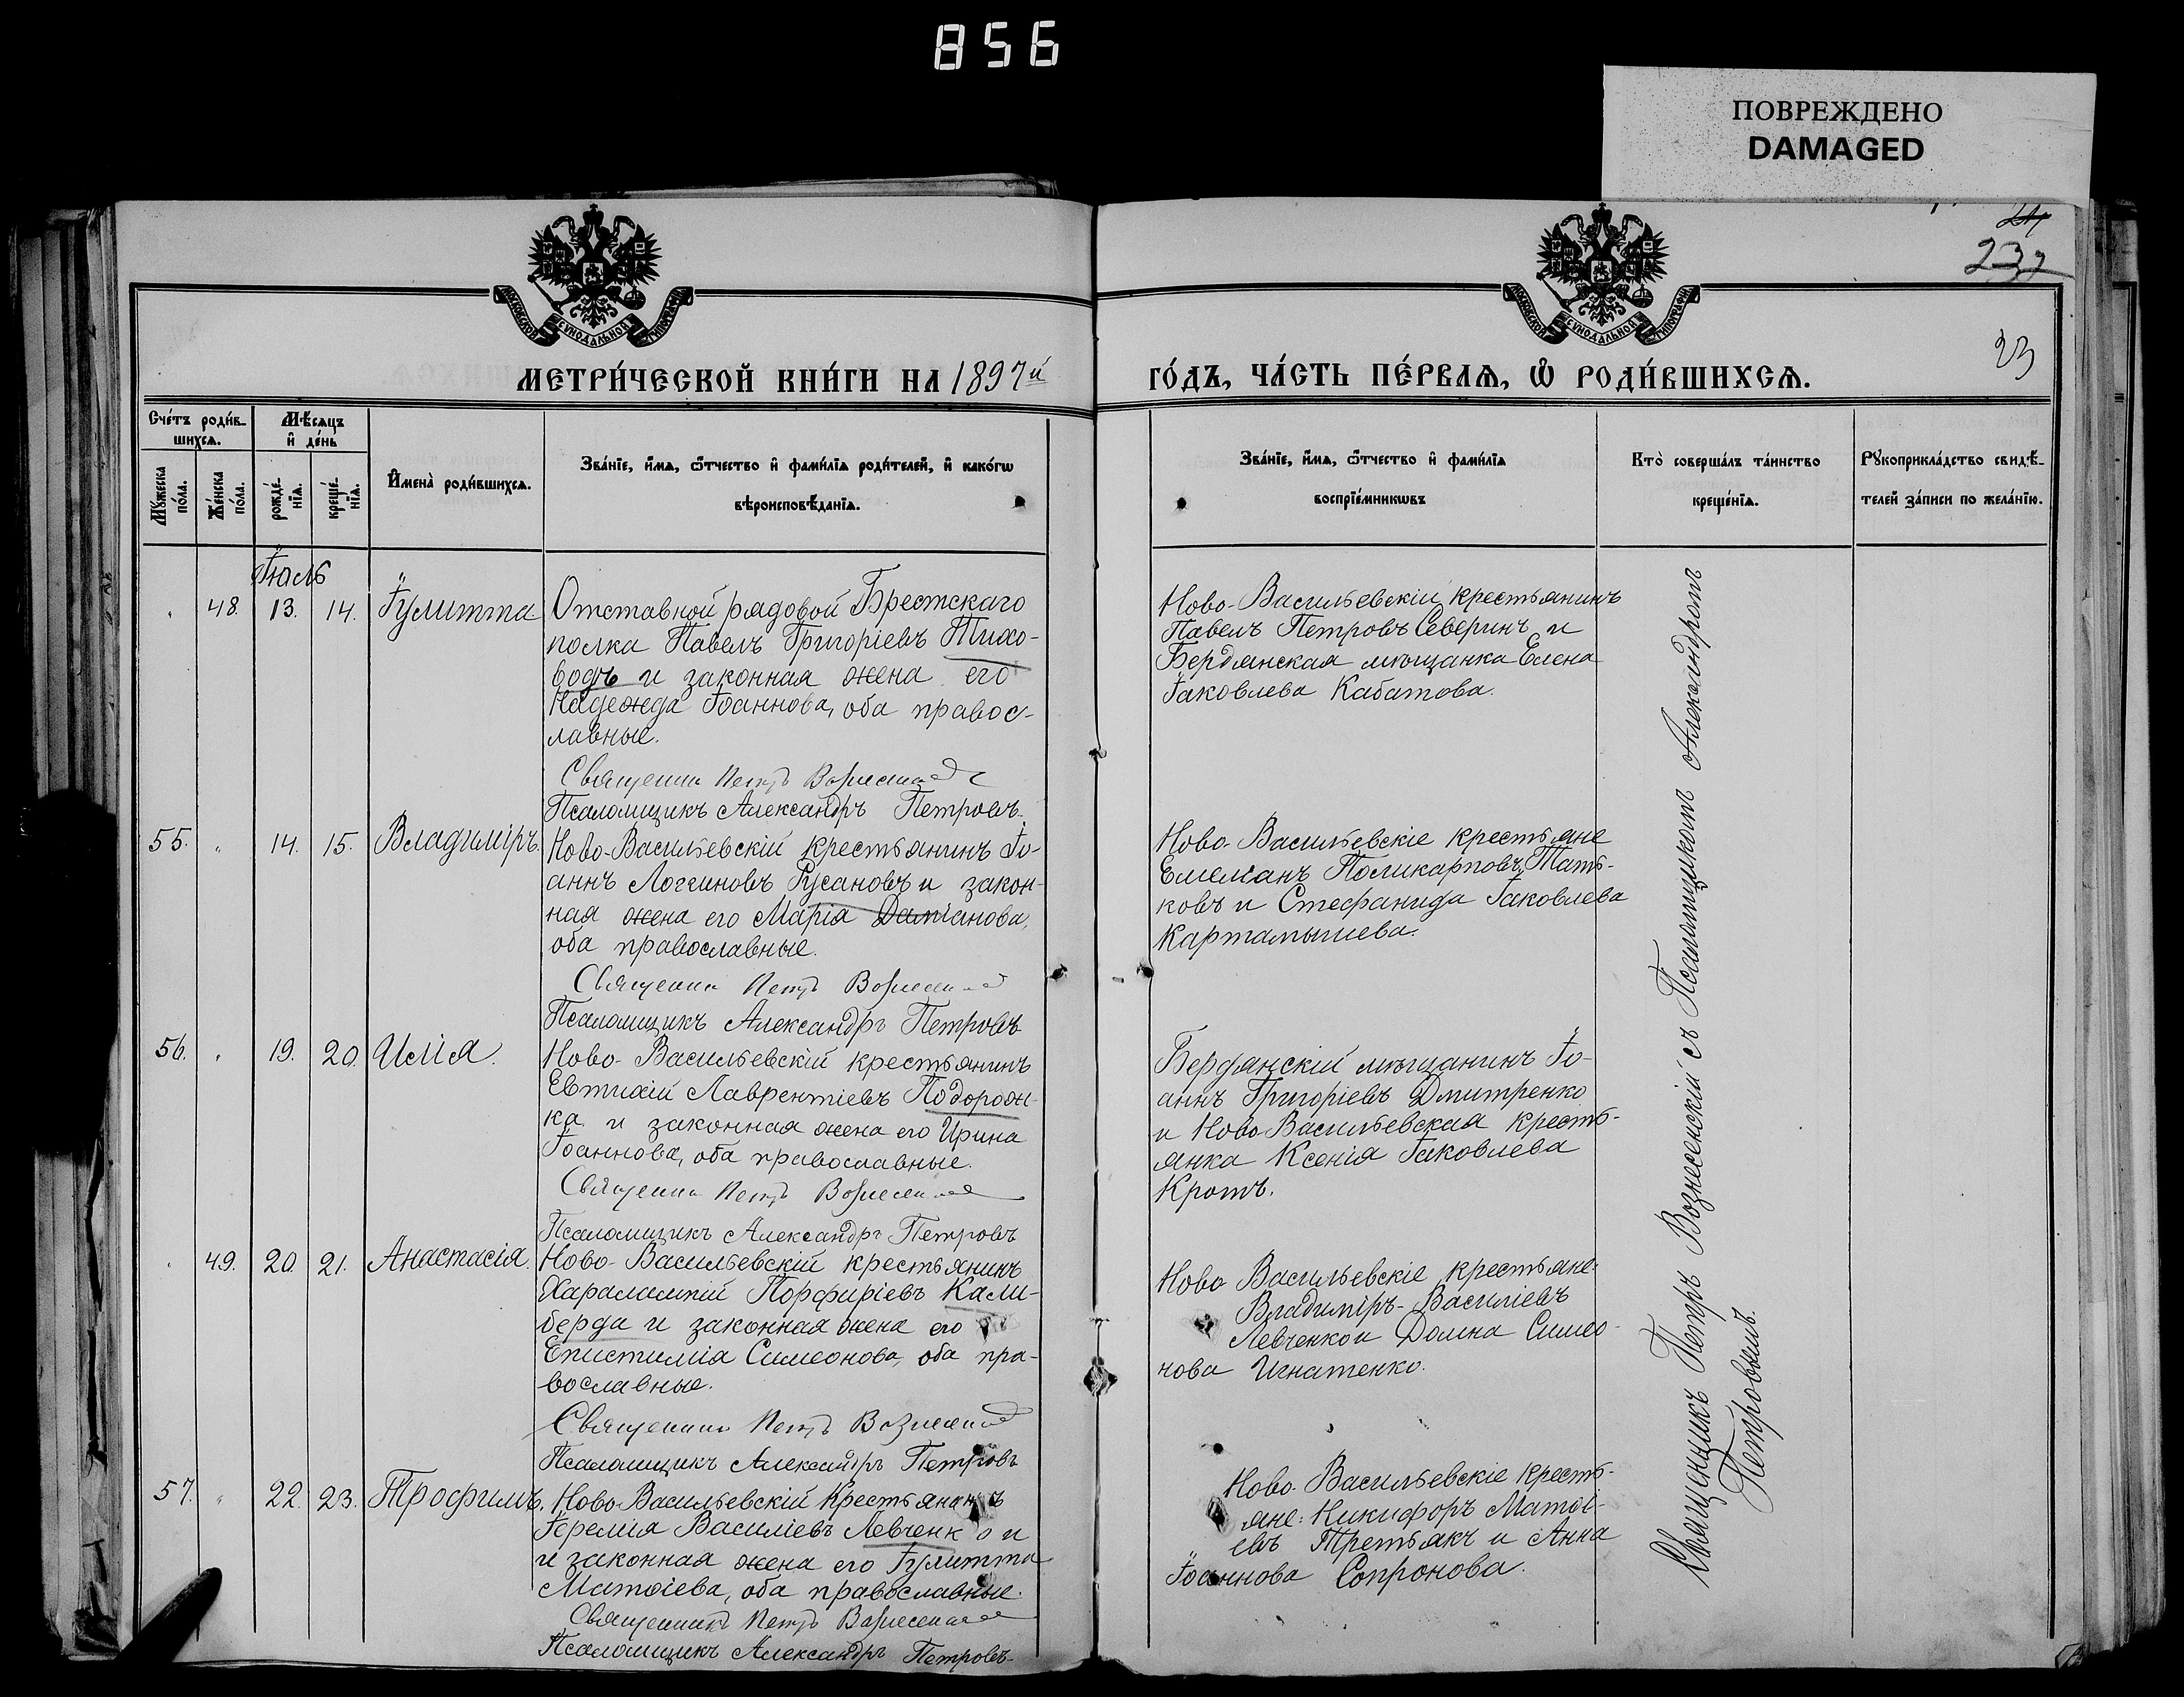 856
ПОВРЕЖДЕНО
DAMAGED
МОСКОВСКОЙ СѴНОДАЛЬНОЙ ТИПОГРАФІИ
МОСКОВСКОЙ СѴНОДАЛЬНОЙ ТИПОГРАФІИ
232
23
МЕТРИ́ЧЕСКОЙ КНИ́ГИ НА 1897 й
ГО́ДЪ, ЧА́СТЬ ПЕ́РВАѦ, Ѡ҆ РОДИ́ВШИХСѦ.
Сче́тъ роди́в-
шихсѧ.
Му́жеска по́ла.
Же́нска по́ла.
Мѣ́сѧцъ и҆ де́нь
рожде́-нїѧ.
креще́-нїѧ.
И҆мена̀ роди́вшихсѧ.
Зва́нїе, и҆́мѧ, ѻ҆́тчество и҆ фами́лїѧ роди́телей, и҆ како́гѡ
вѣроисповѣ́данїѧ.
Зва́нїе, и҆́мѧ, ѻ҆́тчество и҆ фами́лїѧ
воспрїе́мникѡвъ
Кто̀ соверша́лъ та́инство
креще́нїѧ.
Рꙋкоприкла́дство свидѣ́-
телей за́писи по жела́нїю.
Іюль
48. 13. 14. Іулитта
Отставной рядовой Брестскаго
полка Павелъ Григоріевъ Тихо-
водъ и законная жена его
Надежда Іоаннова, оба правос-
лавные.
Священникъ Петръ Вознесенскій
Псаломщикъ Александръ Петровъ.
Ново-Васильевскій крестьянинъ
Павелъ Петровъ Северинъ и
Бердянская мѣщанка Елена
Іаковлева Кабатова.
55. 14. 15. Владиміръ.
Ново-Васильевскій крестьянинъ Іо-
аннъ Логгиновъ Русановъ и закон-
ная жена его Марія Даміанова,
оба православные.
Священникъ Петръ Вознесенскій
Псаломщикъ Александръ Петровъ
Ново-Васильевскіе крестьяне
Емеліанъ Поликарповъ Тать-
ковъ и Стефанида Іаковлева
Картамышева.
56. 19. 20. Илія.
Ново-Васильевскій крестьянинъ
Евтихій Лаврентіевъ Подорож-
ка и законная жена его Ирина
Іоаннова, оба православные.
Священникъ Петръ Вознесенскій
Псаломщикъ Александръ Петровъ
Бердянскій мѣщанинъ Іо-
аннъ Григоріевъ Дмитренко
и Ново-Васильевская кресть-
янка Ксенія Іаковлева
Кротъ.
49. 20. 21. Анастасія.
Ново-Васильевскій крестьянинъ
Харалампій Порфиріевъ Кали-
берда и законная жена его
Епистимія Симеонова, оба пра-
вославные.
Священникъ Петръ Вознесенскій
Псаломщикъ Александръ Петровъ
Ново Васильевскіе крестьяне:
Владиміръ Василіевъ
Левченко и Домна Симео-
нова Игнатенко.
57. 22. 23. Трофимъ.
Ново-Васильевскій крестьянинъ
Іеремія Василіевъ Левченко и
и законная жена его Іулитта
Матѳіева, оба православные.
Священникъ Петръ Вознесенскій
Псаломщикъ Александръ Петровъ
Ново-Васильевскіе кресть-
яне: Никифоръ Матѳі-
евъ Третьякъ и Анна
Іоаннова Сопронова.
Священникъ Петръ Вознесенскій съ Псаломщикомъ Александромъ
Петровымъ.